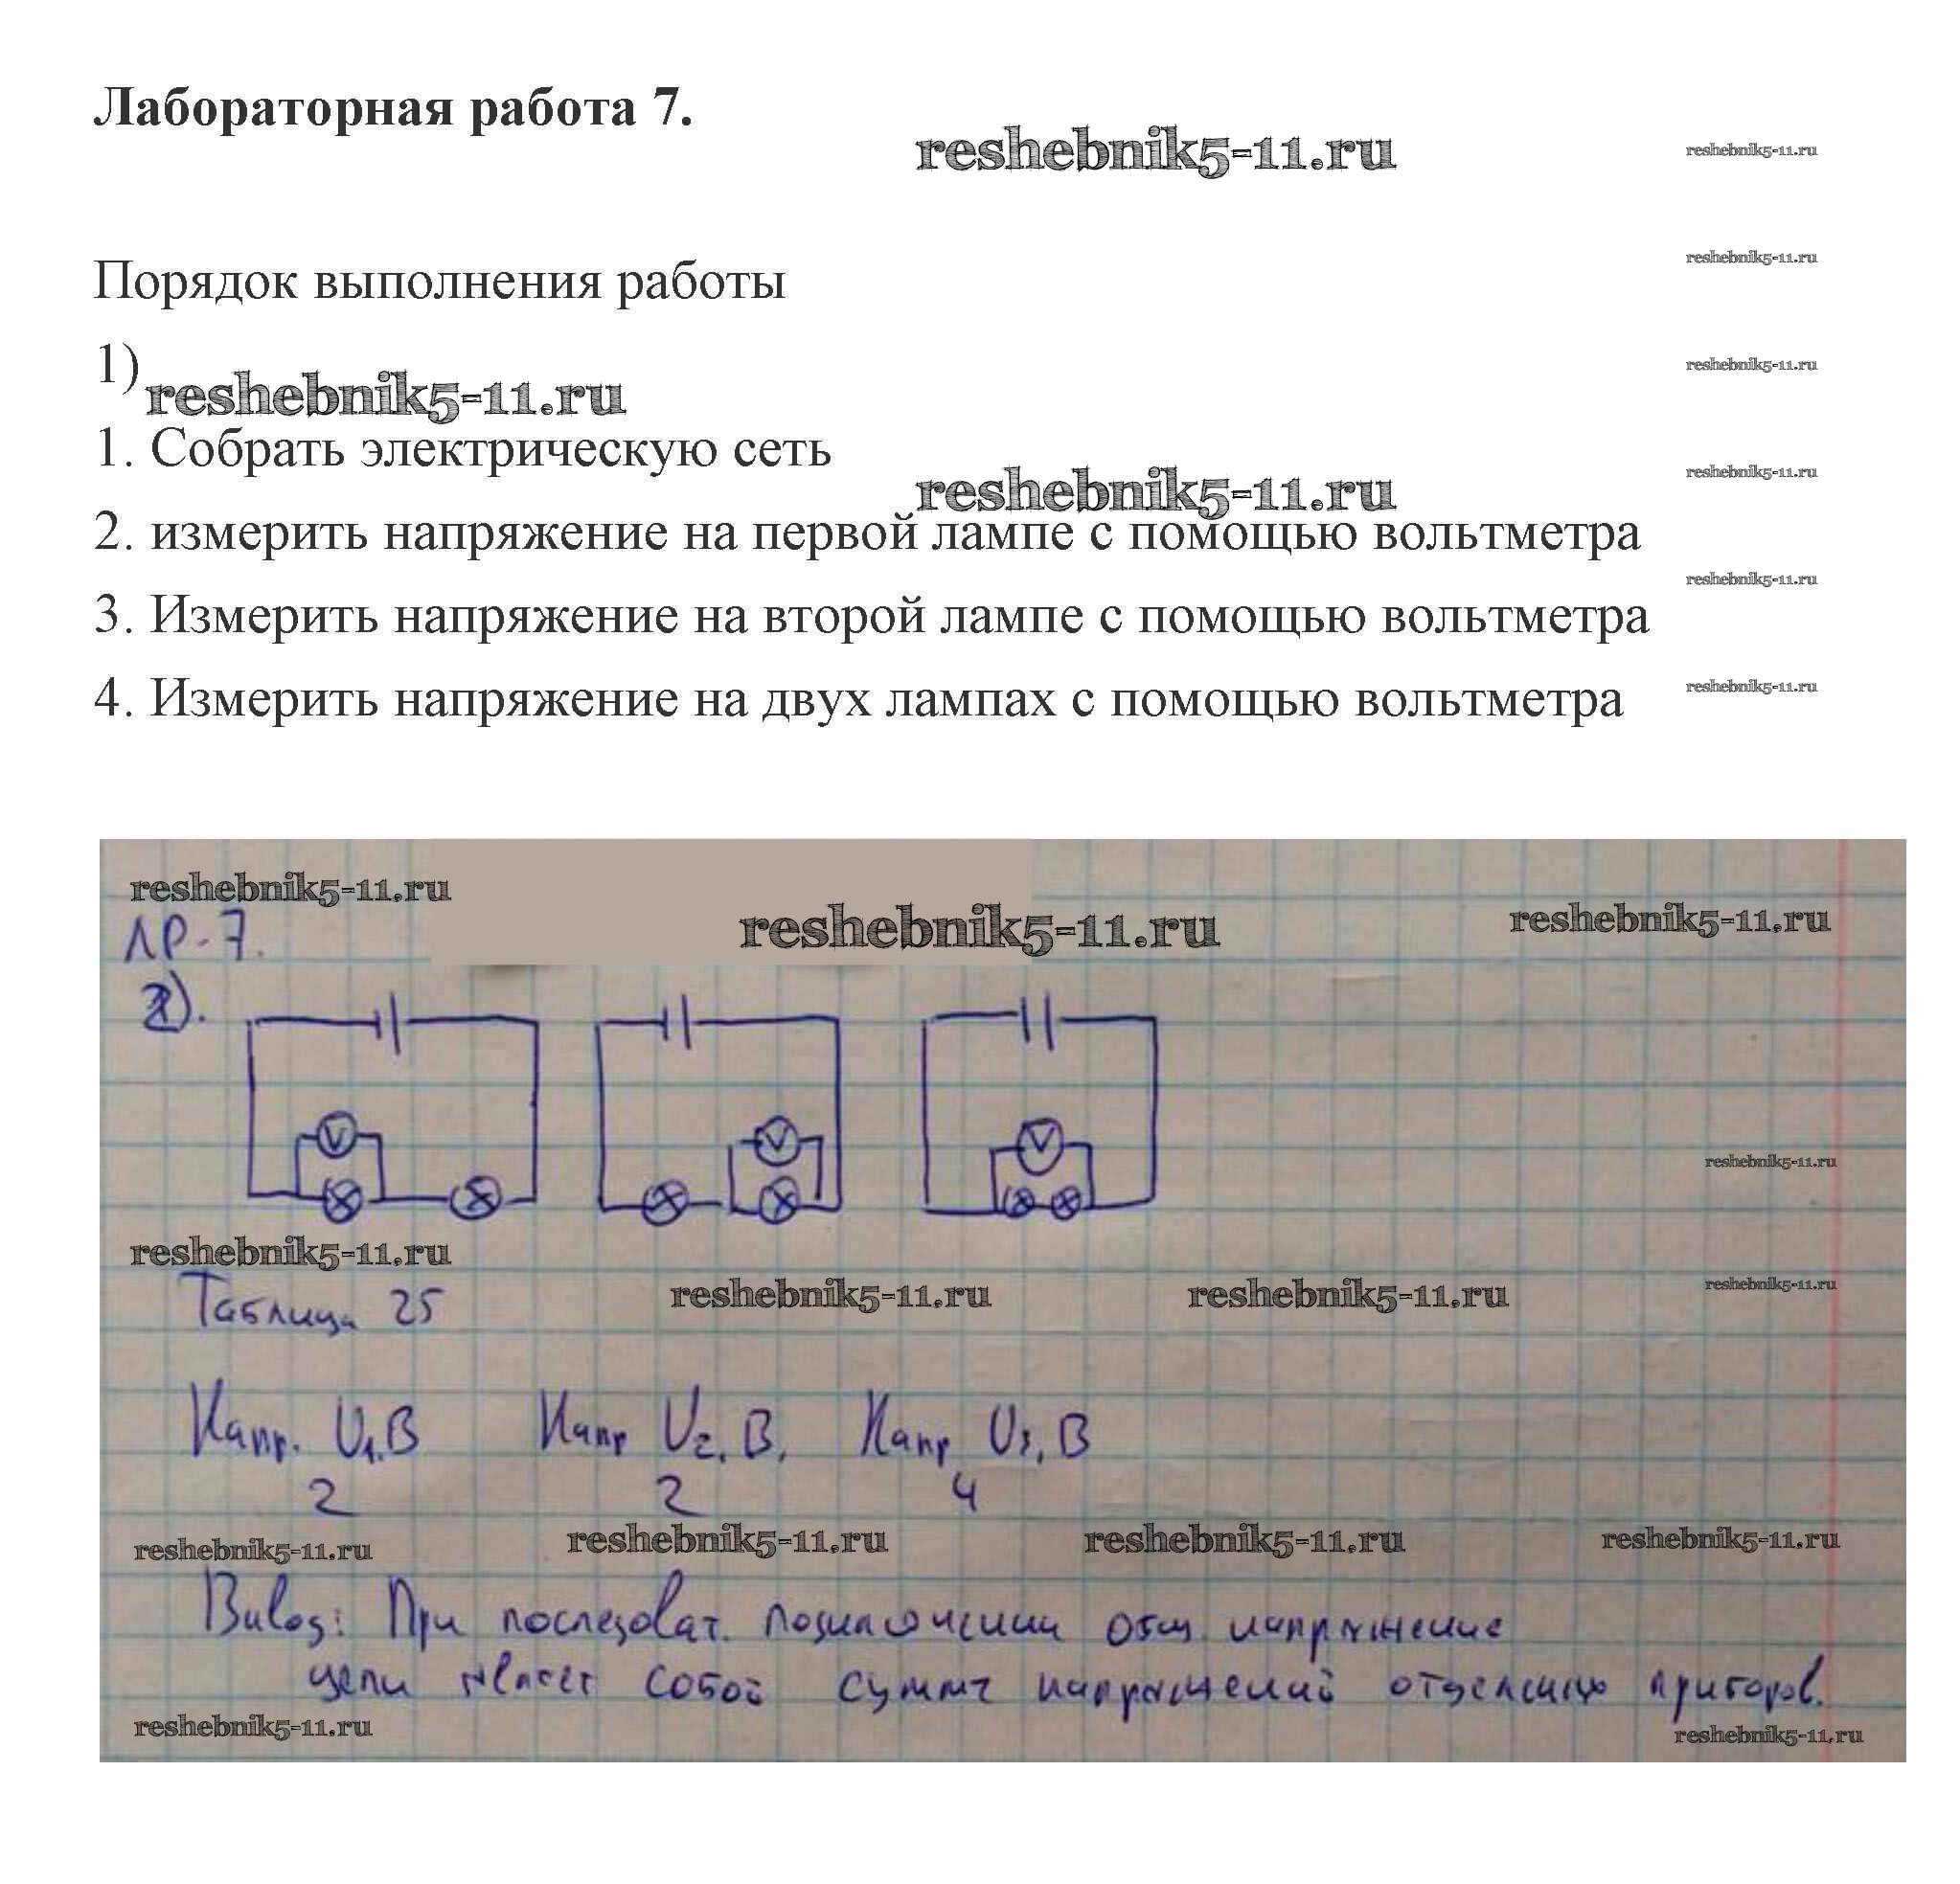 Лабораторная работа 7.
reshebnik5-11.ru
reshebnik5-11.ru
Порядок выполнения работы
reshebnik5-11.ru
1)
reshebnik5-11.ru
reshebnik5-11.ru
1. Собрать электрическую сеть
reshebnik5-11.ru
reshebnik5-11.ru
2. измерить напряжение на первой лампе с помощью вольтметра
reshebnik5-11.ru
3. Измерить напряжение на второй лампе с помощью вольтметра
4. Измерить напряжение на двух лампах с помощью вольтметра
reshebnik5-11.ru
reshebnik5-11.ru
reshebnik5-11.ru
reshebnik5-11.ru
ЛР-7.
2).
V
V
V
reshebnik5-11.ru
reshebnik5-11.ru
reshebnik5-11.ru
reshebnik5-11.ru
reshebnik5-11.ru
Таблица 25
Напр. U1, В Напр U2, В, Напр U3, В
2 2 4
reshebnik5-11.ru
reshebnik5-11.ru
reshebnik5-11.ru
reshebnik5-11.ru
Вывод: При последоват. подключении общ. напряжение
цепи являет собой сумму напряжений отдельных приборов.
reshebnik5-11.ru
reshebnik5-11.ru